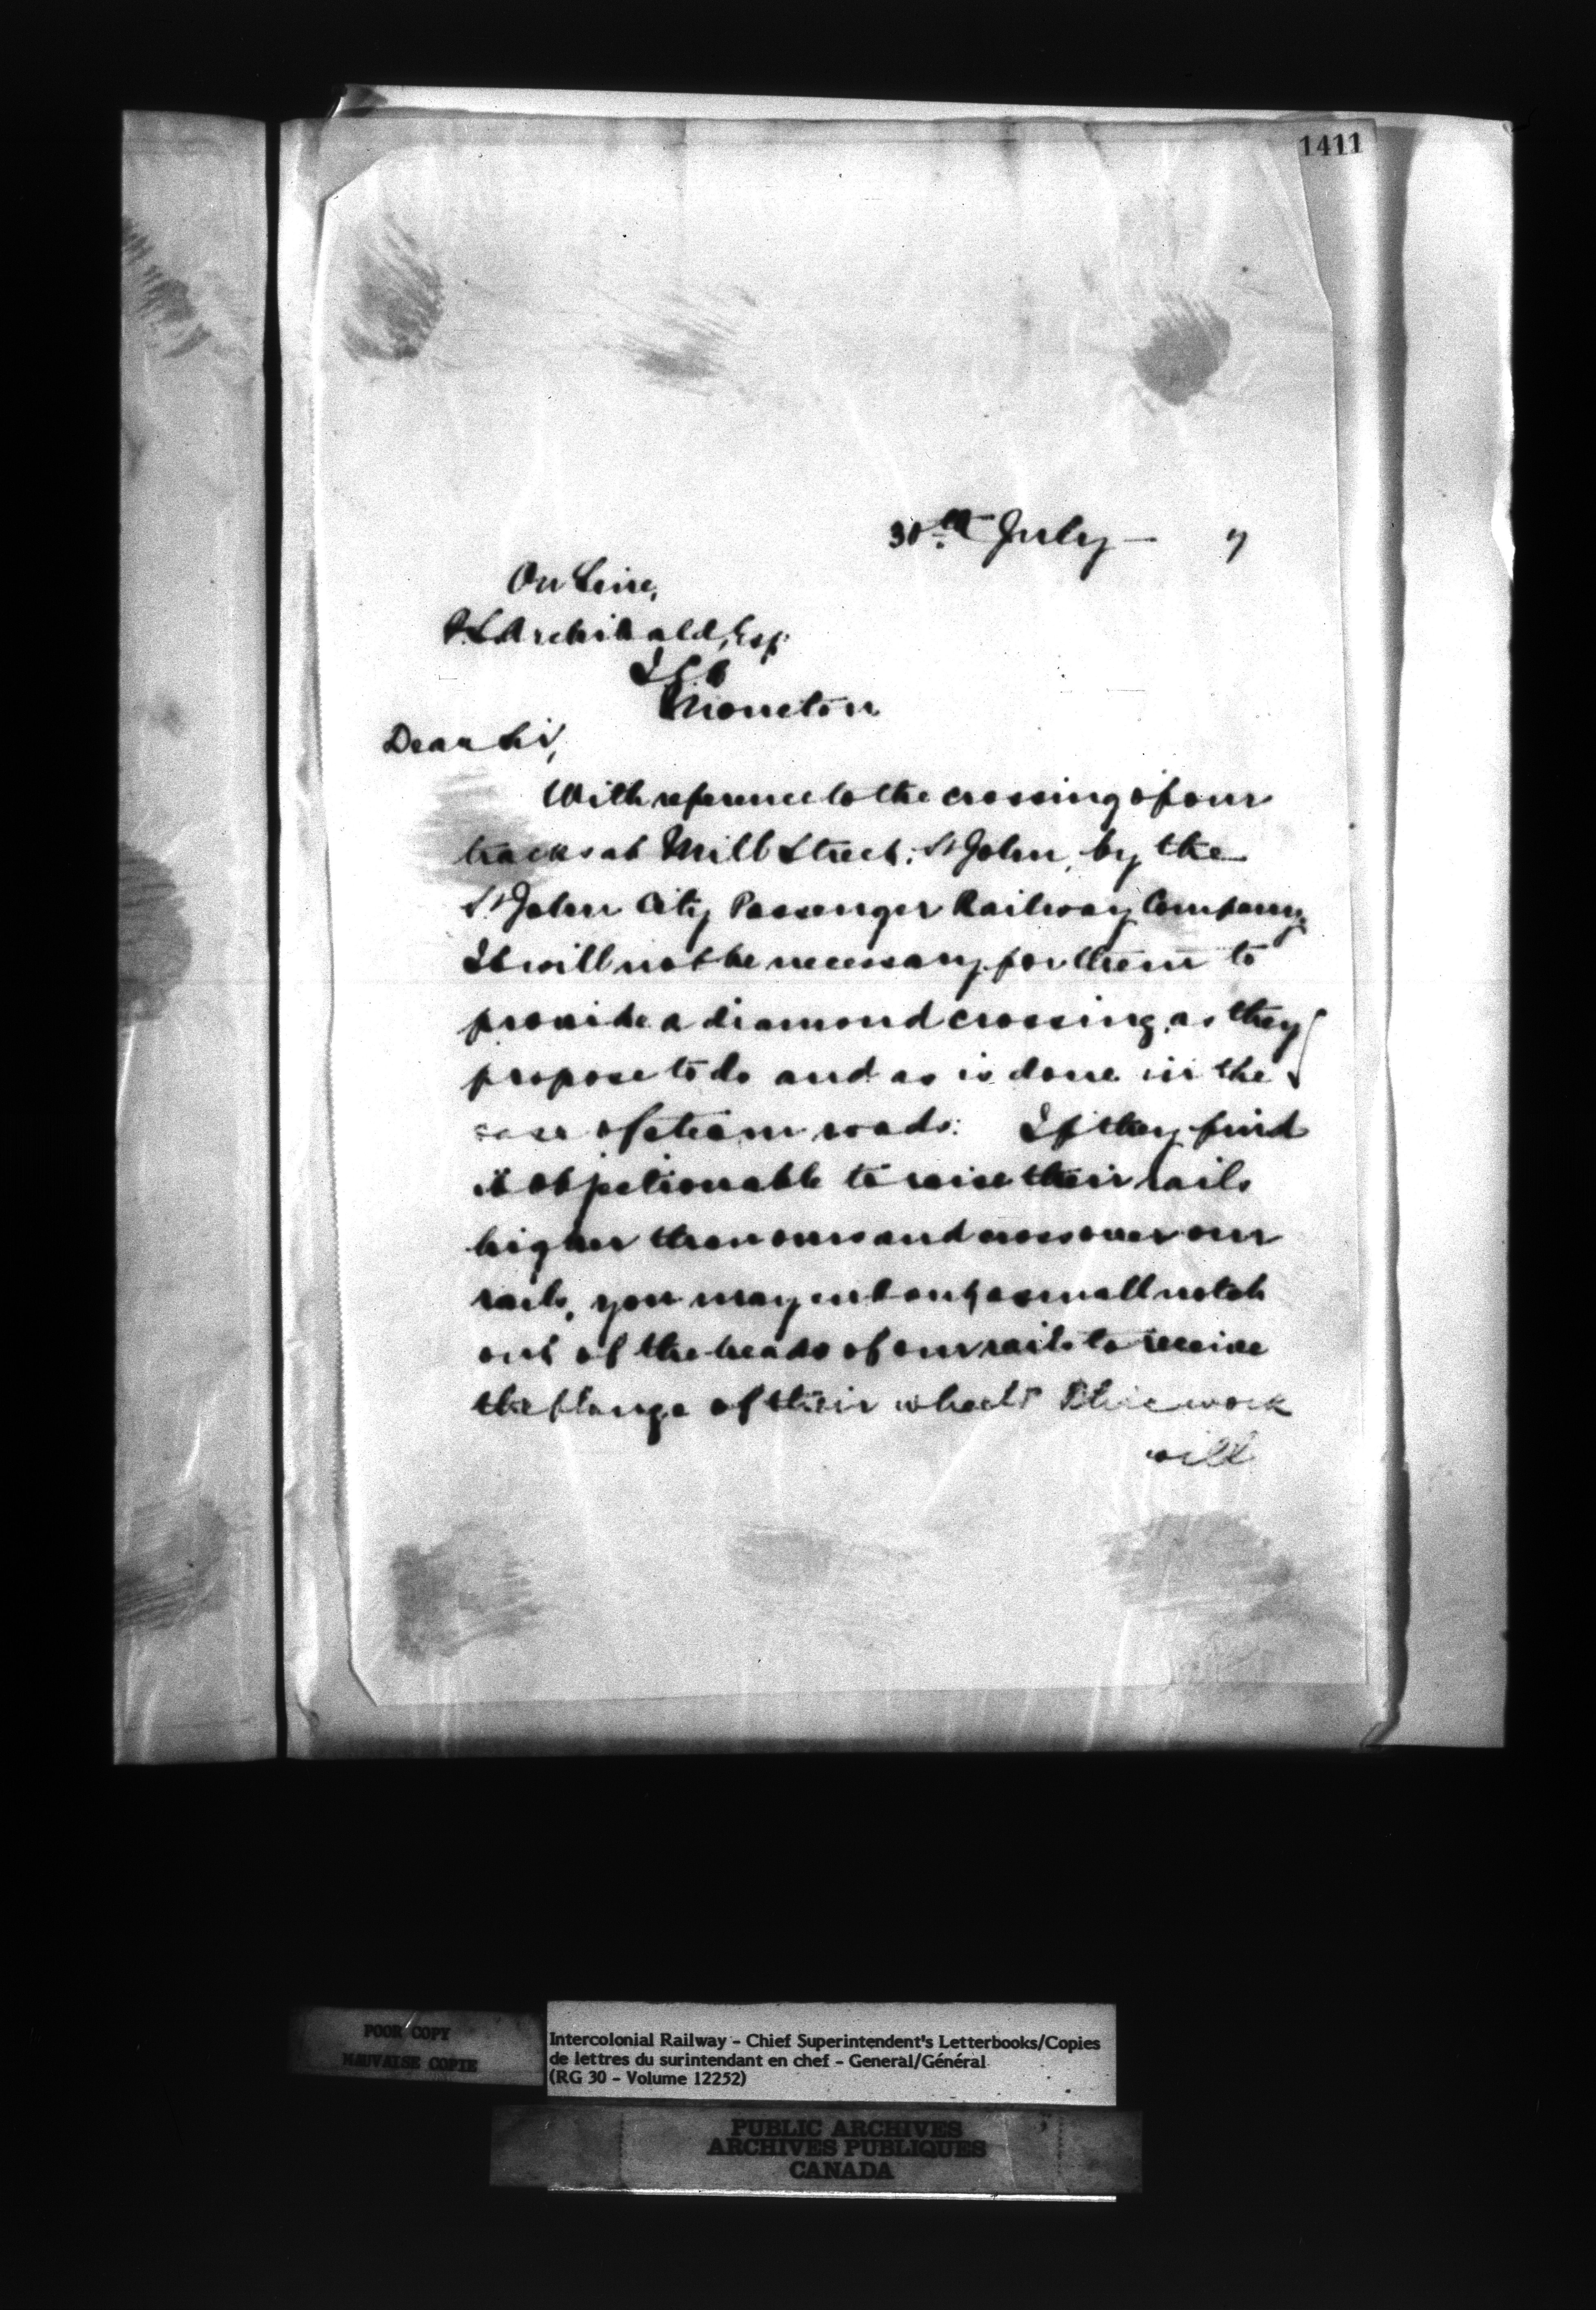 1411
30th July — 7
On Line,
P.S. Archibald, Esq.
Moncton
Dear Sir,
With reference to the crossing of our
tracks at Mill Street, St John, by the
St John City Passenger Railway Company,
It will not be necessary for them to
provide a diamond crossing, as they
propose to do and as is done in the
case of steam roads. If they find
it objectionable to raise their rails
higher than ours and cross over our
rails, you may cut out a small notch
out of the heads of our rails to receive
the flange of their wheels. This work
will
POOR COPY
MAUVAISE COPIE
Intercolonial Railway - Chief Superintendent's Letterbooks/Copies
de lettres du surintendant en chef - General/Général
(RG 30 - Volume 12252)
PUBLIC ARCHIVES
ARCHIVES PUBLIQUES
CANADA